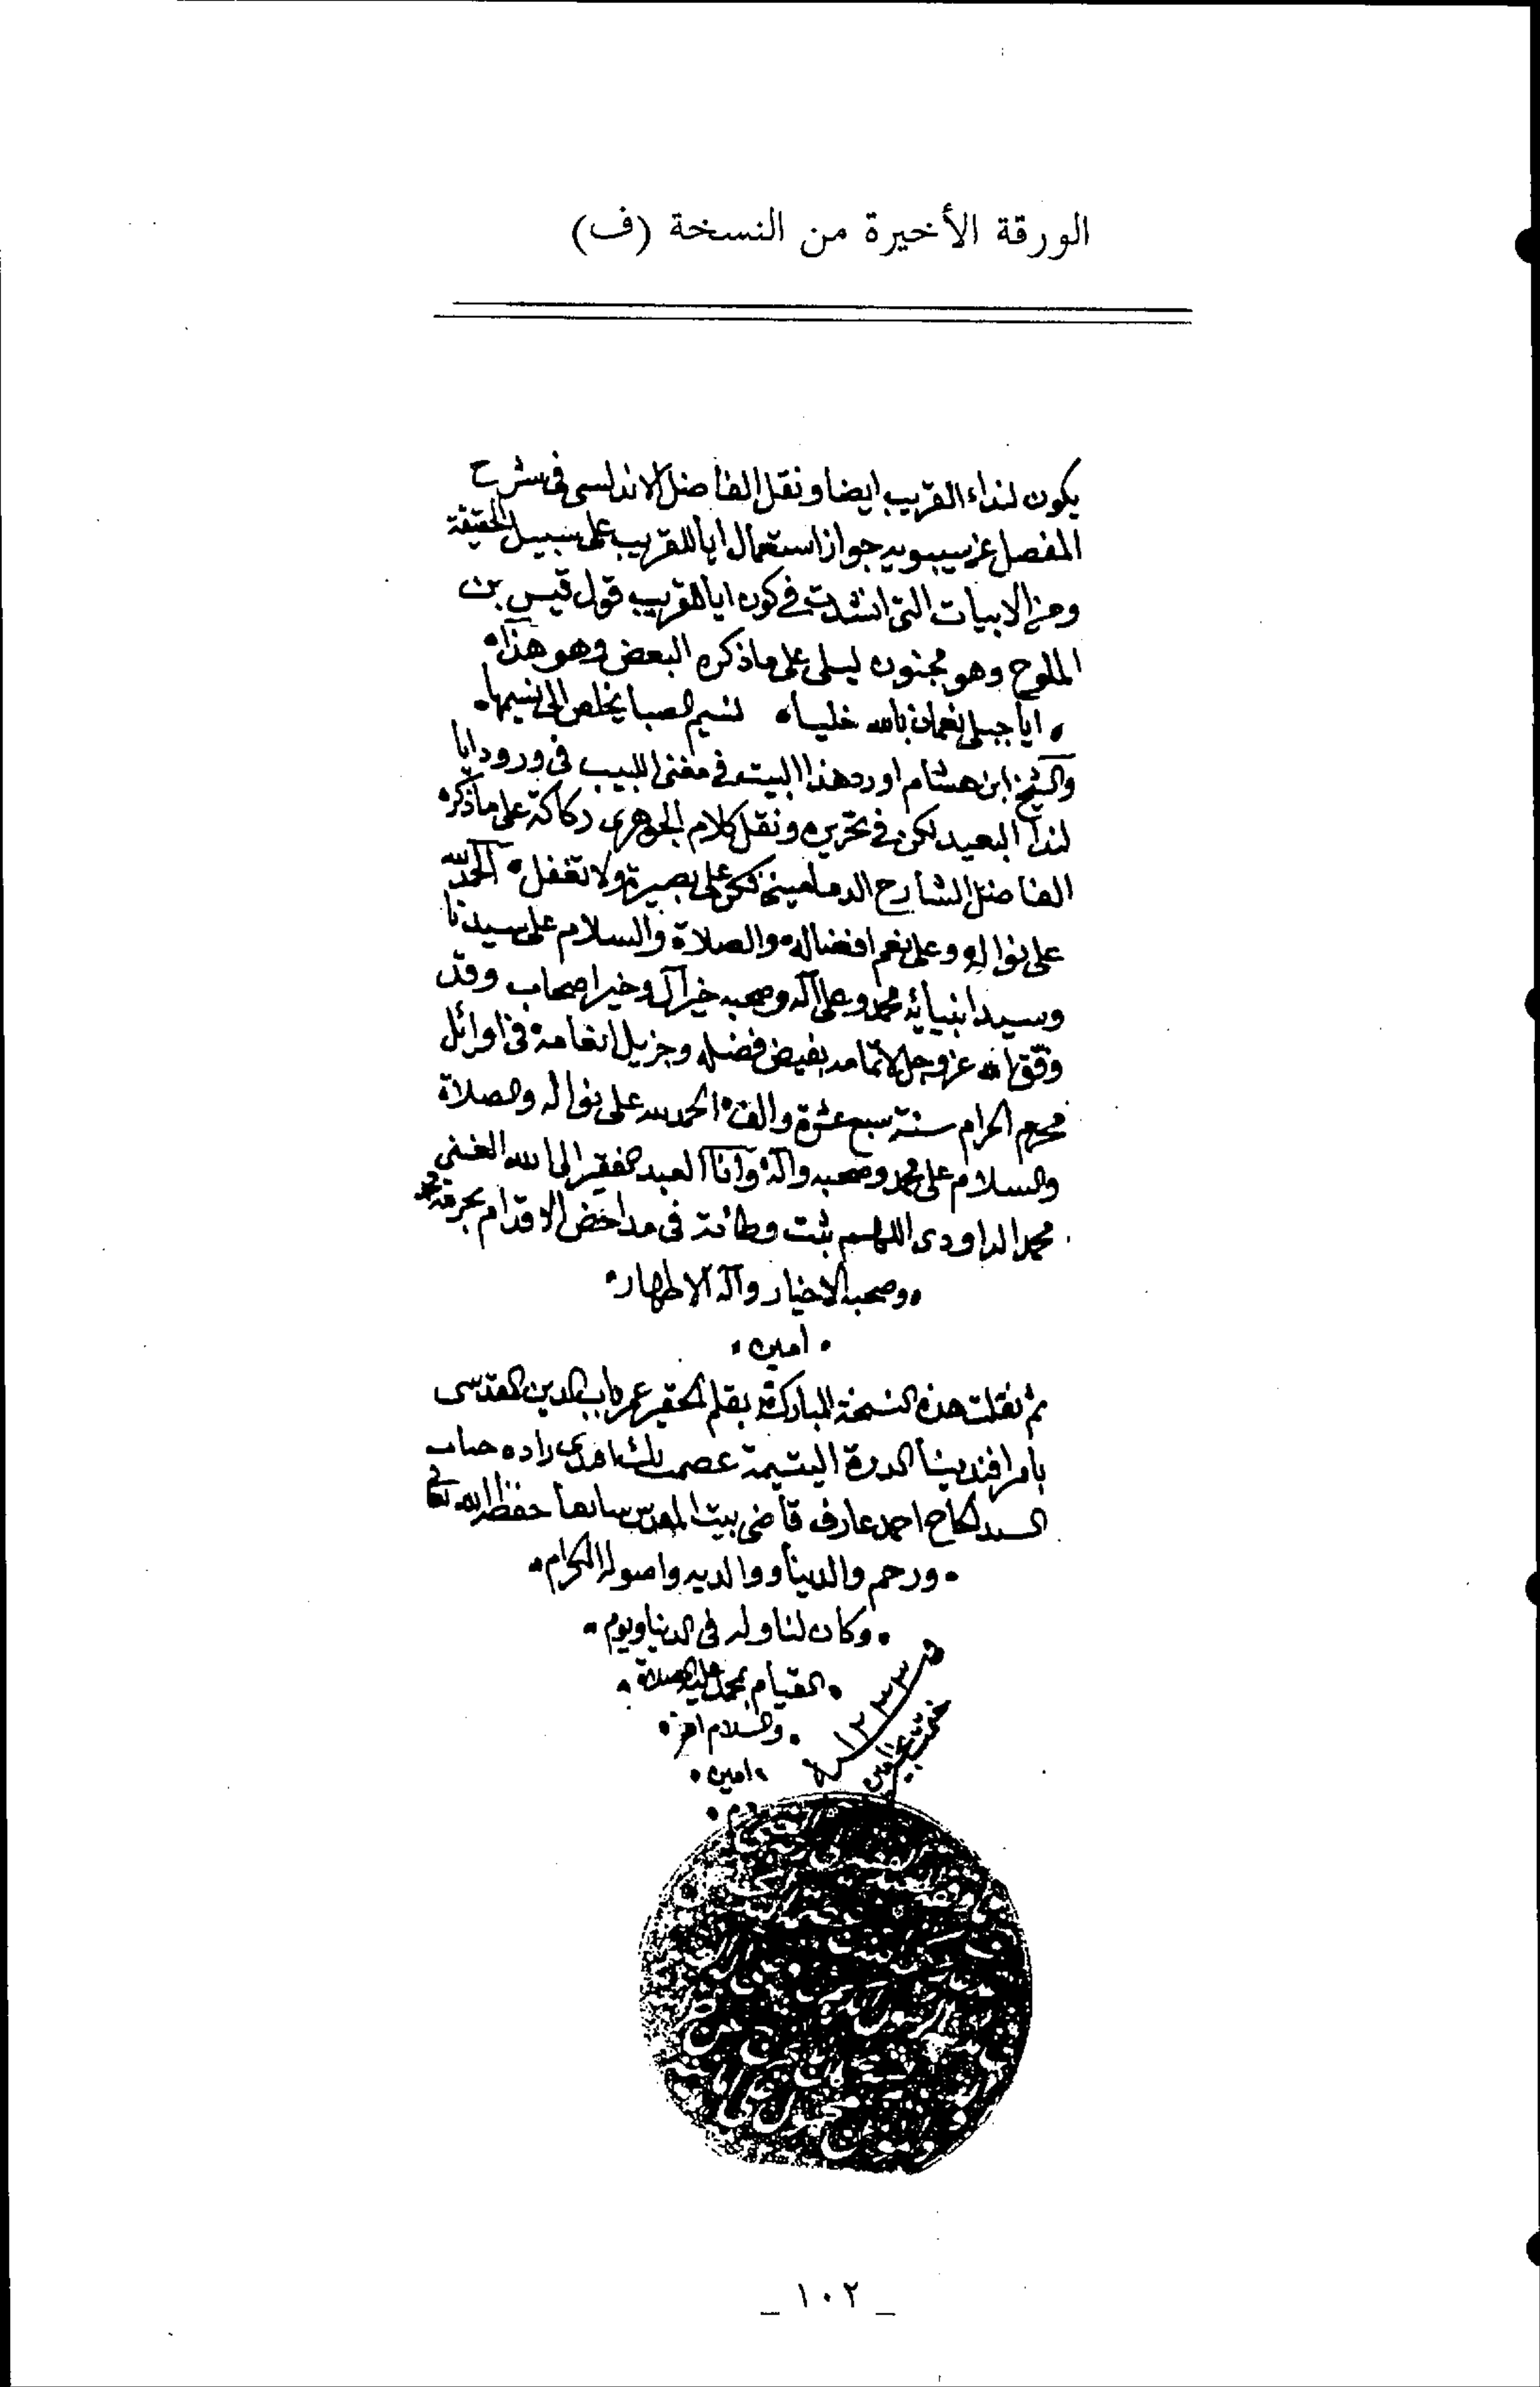 الورقة الأخيرة من النسخة (ف)
يكون لنداء القريب ايضا ونقل الفاضل الاندلسى فى شرح
المفصل عن سيبويه جواز استعمال ايا للقريب على سبيل الحقيقة
ومن الابيات التى انشدت فى كون ايا للقريب قول قيس بن
الملوح وهو مجنون ليلى على ما ذكره البعض وهو هذا
ايا جبلى نعمان بالله خليا نسيم الصبا يخلص الى نسيمها
والشيخ ابن هشام اورد هذا البيت فى مغنى اللبيب فى ورود ايا
لندآ البعيد لكن فى تحريره ونقل كلام الجوهرى ركاكة على ما ذكره
الفاضل الشارح الدمامينى فكن على بصيرة ولا تغفل الحمد لله
على نواله وعلى نعم افضاله والصلاة والسلام على سيدنا
وسيد انبيائه محمد وعلى آله وصحبه خير آل وخير اصحاب وقد
وفق الله عز وجل لاتمامه بفيض فضله وجزيل انعامه فى اوائل
محرم الحرام سنة سبع عشرة والف الحمد لله على نواله والصلاة
والسلام على محمد وصحبه وآله وانا العبد الفقير الى الله الغنى
محمد الداودى اللهم ثبت وطائته فى مداحض الاقدام بحرمة محمد
وصحبه الاخيار وآله الاطهار
امين
ثم نقلت هذه النسخة المباركة بقلم الحقير عمر الدين القدسى
بامر افندينا الدرة اليتيمة عصمت زاده جناب
السيد الحاج احمد عارف قاضى بيت المقدس سابقا حفظه الله تعالى
ورحم والدينا ووالديه واصوله الكرام
وكان لنا وله فى الدنيا ويوم
القيام بمحمد عليه الصلاة
والسلام
امين
م
١٢٣٣
١٠٢